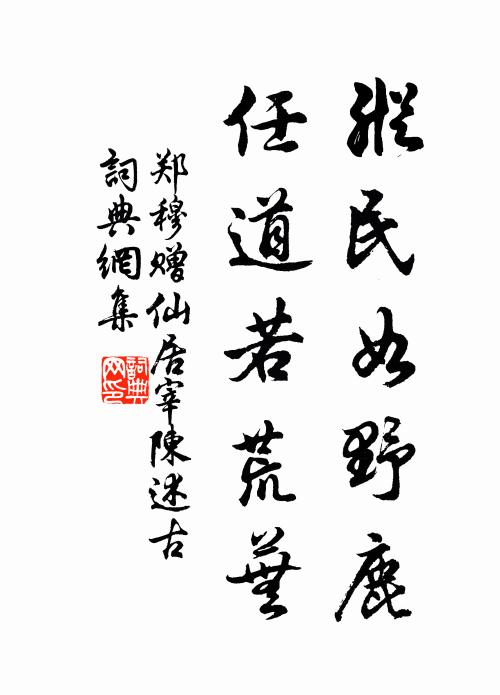 縱民如野鹿
任道若荒蕪
郑穆赠仙居宰陳述古
詞典網集
詞典
网印